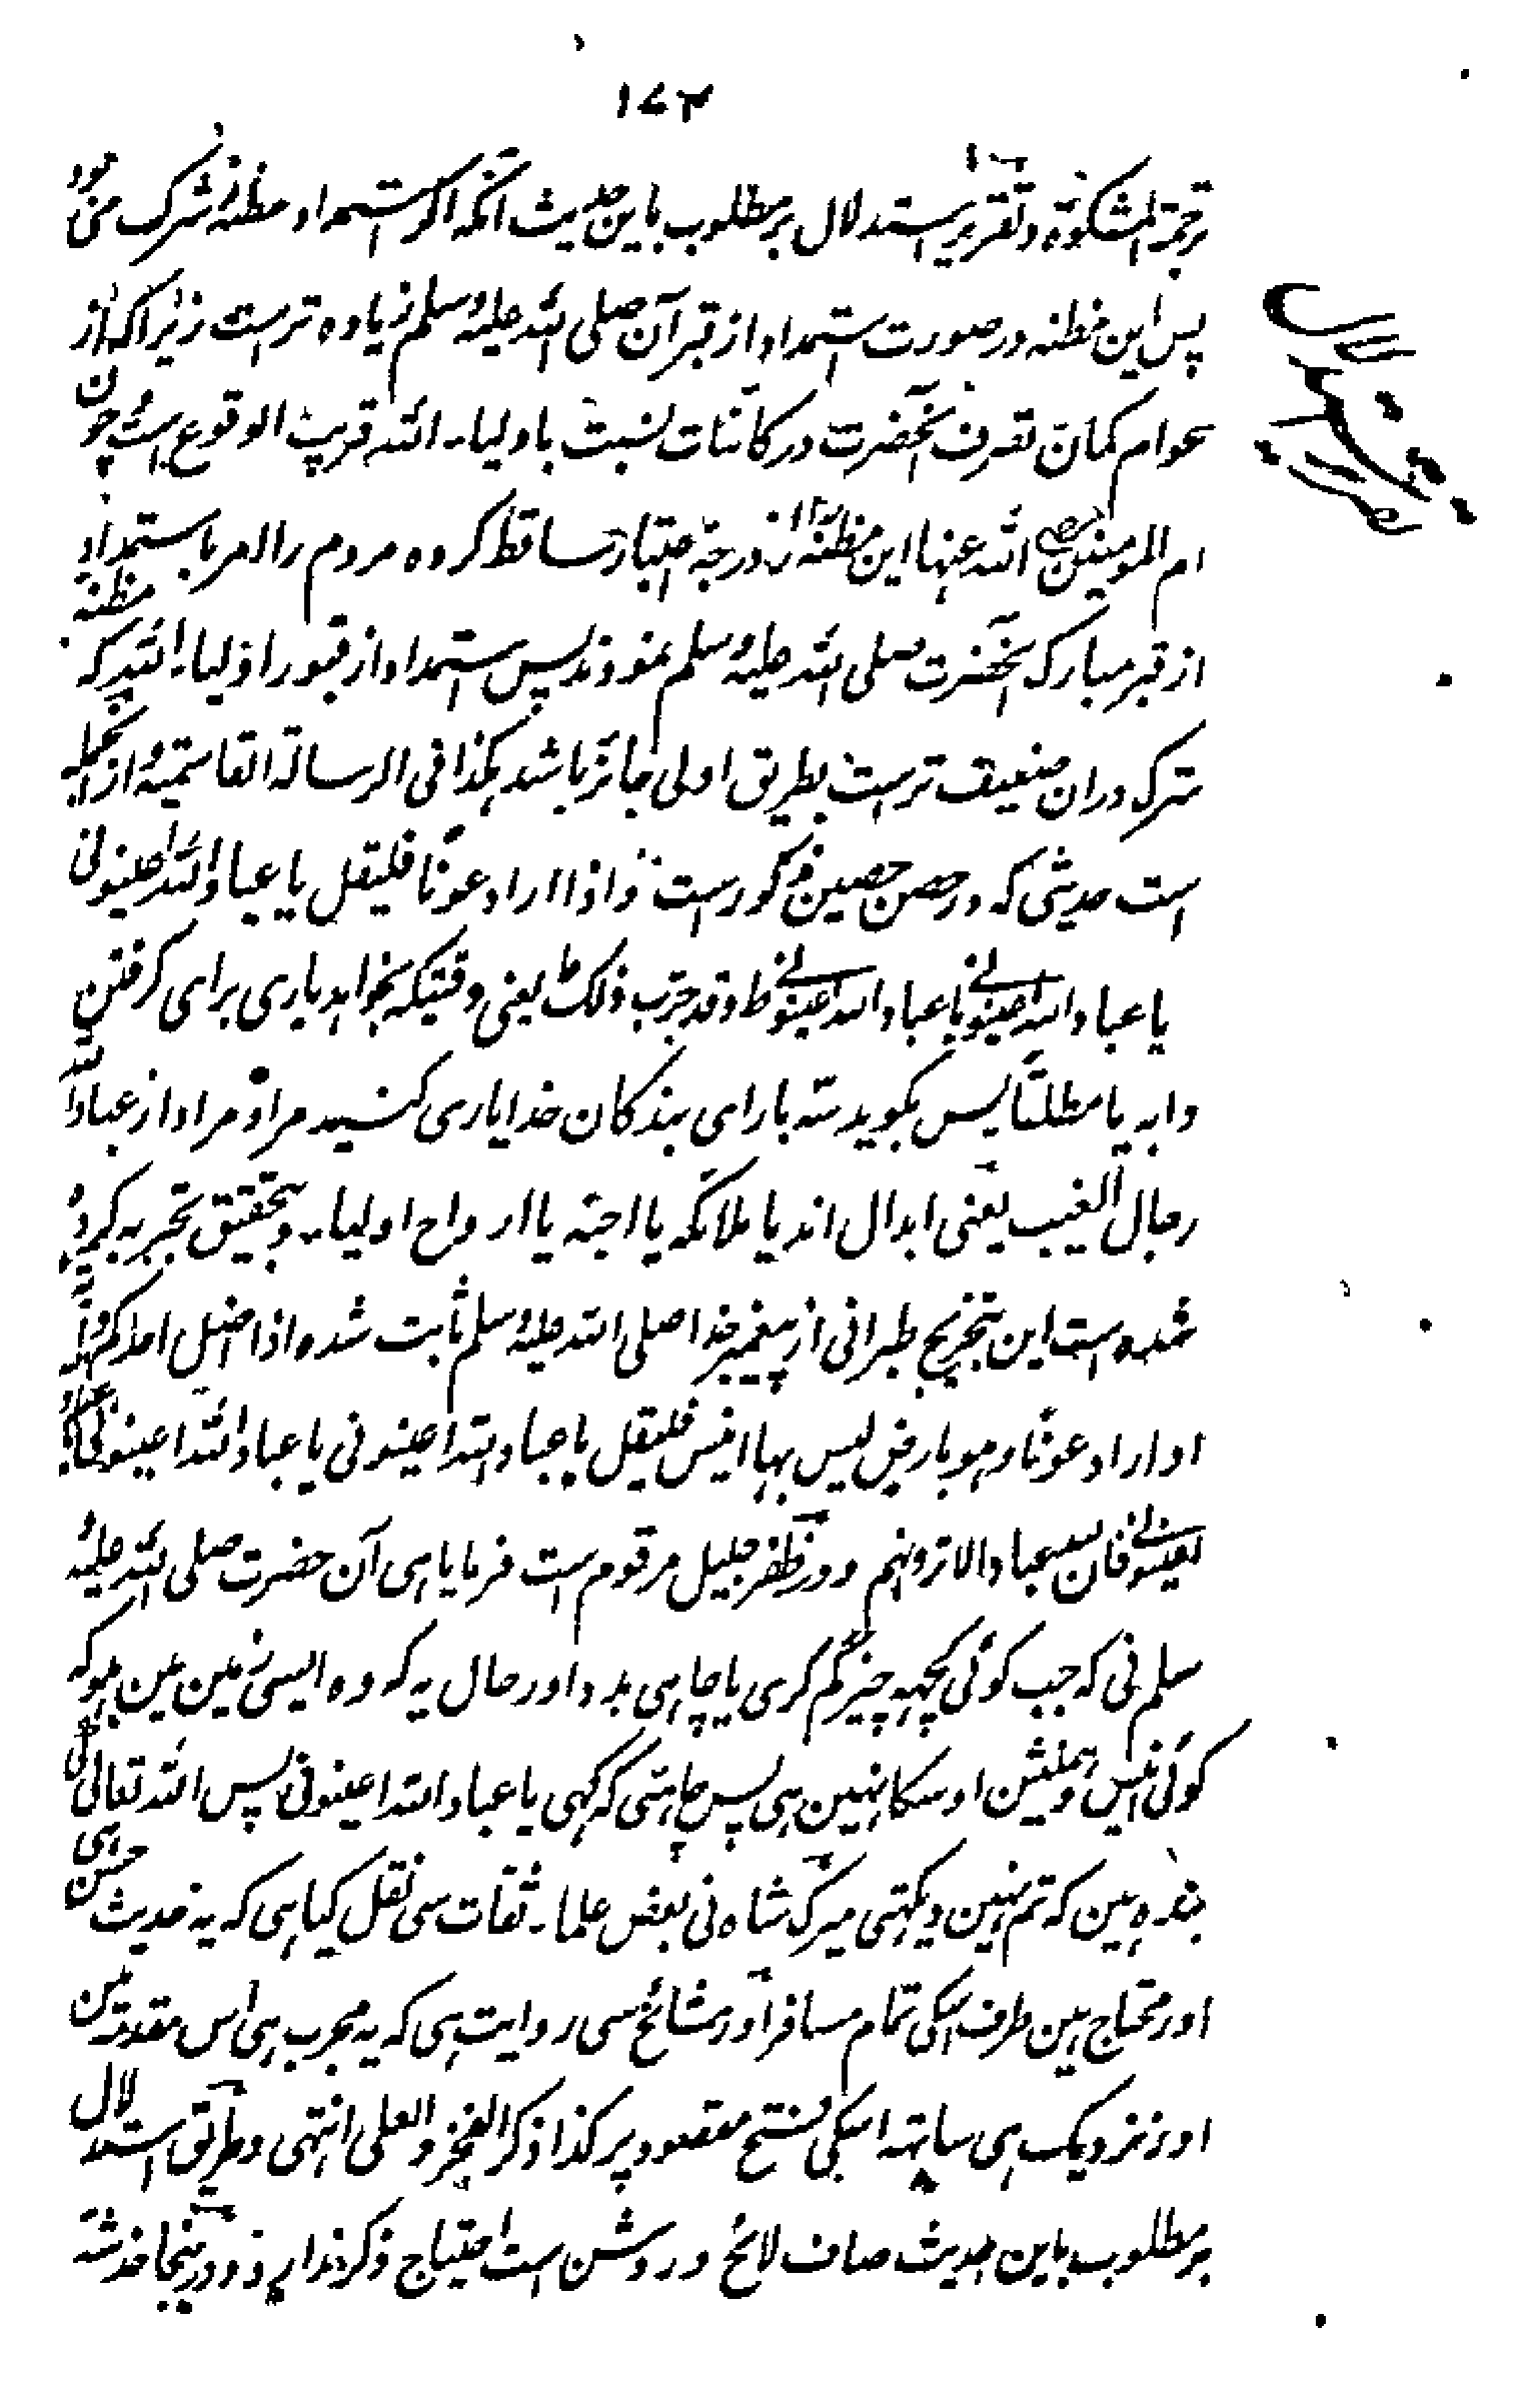 ۱۷۳
ترجمة المشکوة و تقریر استدلال بر مطلوب باین حدیث آنکه اگر استمداد مظنهٔ شرک می بود
پس این مظنه در صورت استمداد از قبر آن صلی الله علیه وسلم زیاده ترست زیراکه از
عوام گمان تصرف آنحضرت در کائنات نسبت باولیاء الله قریب الوقوع است چون
ام المومنین رضی الله عنها این مظنه را از درجهٔ اعتبار ساقط کرده مردم را امر باستمداد
از قبر مبارک آنحضرت صلی الله علیه وسلم نمودند پس استمداد از قبور اولیاء الله که مظنه
شرک دران ضعیف ترست بطریق اولی جائز باشد هکذا فی الرسالة القاسمیه و ازانجمله
است حدیثی که در حصن حصین مذکورست و اذا اراد عونًا فلیقل یا عباد الله اعینونی
یا عباد الله اعینونی یا عباد الله اعینونی ط وقد جرب ذلک ط یعنی وقتیکه بخواهد یاری برای گرفتن
دابه یا مطلقًا پس بگوید سه بار ای بندگان خدا یاری کنید مرا و مراد از عباد الله
رجال الغیب یعنی ابدال اند یا ملائکه یا اجنه یا ارواح اولیاء و بتحقیق تجربه کرده
شده است این بتخریج طبرانی از پیغمبر خدا صلی الله علیه وسلم ثابت شده اذا اضل احدکم شیئا
او اراد عونًا وهو بارض لیس بها انیس فلیقل یا عباد الله اعینونی یا عباد الله اعینونی یا عباد
الله اعینونی فان لله عبادا لا نرو‌نهم و در ظفر جلیل مرقوم است فرمایا ہی آن حضرت صلی الله علیه و
سلم نی کہ جب کوئی کچہہ چیز گم کری یا چاہی مدد اور حال یہ کہ وہ ایسی زمین مین ہو کہ
کوئی انیس و ہمنشین اوسکا نہین ہی پس چاہئی کہ کہی یا عباد الله اعینونی پس الله تعالی کی
بندہ ہین کہ تم نہین دیکہتی میرک شاہ نی بعض علماء ثقات سی نقل کیا ہی کہ یہ حدیث حسن ہی
اور محتاج ہین طرف اسکی تمام مسافر اور مشائخ سی روایت ہی کہ یہ مجرب ہی اس مقدمہ مین
اور نزدیک ہی ساتہہ اسکی فتح مقصود پر کذا ذکر الفخر و العلی انتهی و طریق استدلال
بر مطلوب باین حدیث صاف لائح و روشن است احتیاج ذکر ندارد و درینجا خدشه